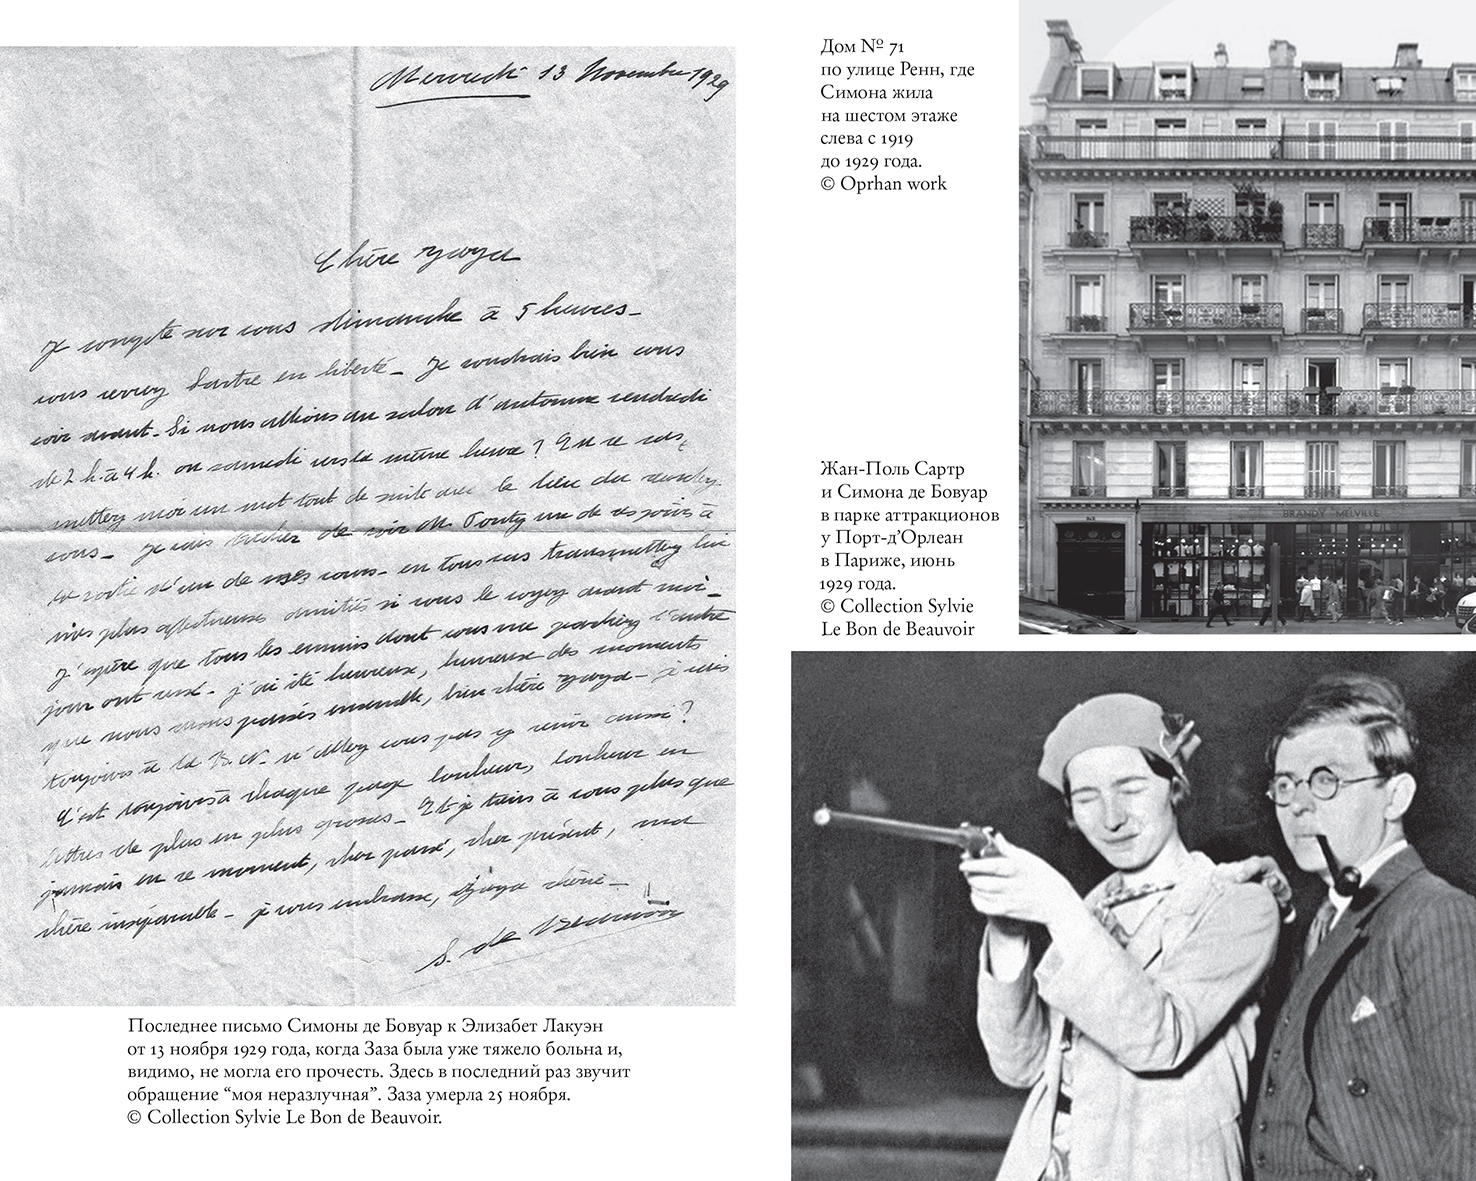 Mercredi 13 Novembre 1929
Chère Zaza
Je compte sur vous dimanche à 5 heures –
vous verrez Sartre en liberté – Je voudrais bien vous
voir avant – Si nous allions au salon d'automne vendredi
de 2 h. à 4 h. ou samedi vers la même heure ? En ce cas,
mettez moi un mot tout de suite avec le lieu du rendez-
vous – Je vais tâcher de voir M. Ponty un de ces jours à
la sortie d'un de ses cours – en tous cas transmettez lui
mes plus affectueuses amitiés si vous le voyez avant moi –
J'espère que tous les ennuis dont vous me parliez l'autre
jour ont cessé – j'ai été heureuse, heureuse des moments
que nous avons passés ensemble, bien chère Zaza – je vais
toujours à la B. N. n'allez vous pas y venir aussi ?
C'est toujours à chaque page bonheur, bonheur en
lettres de plus en plus grosses – Et je tiens à vous plus que
jamais en ce moment, cher passé, cher présent, ma
chère inséparable – je vous embrasse, Zaza chérie –
S. de Beauvoir
Последнее письмо Симоны де Бовуар к Элизабет Лакуэн
от 13 ноября 1929 года, когда Заза была уже тяжело больна и,
видимо, не могла его прочесть. Здесь в последний раз звучит
обращение “моя неразлучная”. Заза умерла 25 ноября.
© Collection Sylvie Le Bon de Beauvoir.
Дом № 71
по улице Ренн, где
Симона жила
на шестом этаже
слева с 1919
до 1929 года.
© Oprhan work
BRANDY MELVILLE
Жан-Поль Сартр
и Симона де Бовуар
в парке аттракционов
у Порт-д’Орлеан
в Париже, июнь
1929 года.
© Collection Sylvie
Le Bon de Beauvoir